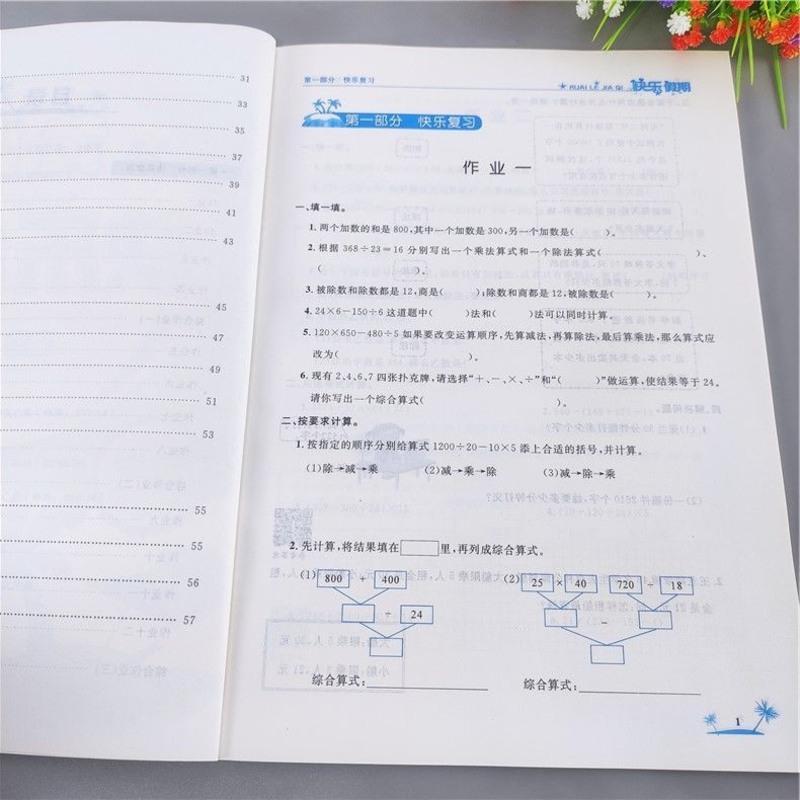 31
33
35
37
39
41
43
45
47
49
51
53
55
55
56
57
第一部分 快乐复习
KUAI LE JIA QI 快乐假期
第一部分 快乐复习
作业一
一、填一填。
1. 两个加数的和是 800,其中一个加数是 300,另一个加数是( )。
2. 根据 368÷23=16 分别写出一个乘法算式和一个除法算式( )、
( )。
3. 被除数和除数都是 12,商是( );除数和商都是 12,被除数是( )。
4. 24×6-150÷6 这道题中( )法和( )法可以同时计算。
5. 120×650-480÷5 如果要改变运算顺序,先算减法,再算除法,最后算乘法,那么算式应
改为( )。
6. 现有 2、4、6、7 四张扑克牌,请选择“+、-、×、÷”和“( )”做运算,使结果等于 24。
请你写出一个综合算式( )。
二、按要求计算。
1. 按指定的顺序分别给算式 1200÷20-10×5 添上合适的括号,并计算。
(1)除→减→乘 (2)减→乘→除 (3)减→除→乘
2. 先计算,将结果填在 里,再列成综合算式。
(1) 800 + 400 (2) 25 × 40 720 ÷ 18
÷ 24 -
综合算式: 综合算式:
1